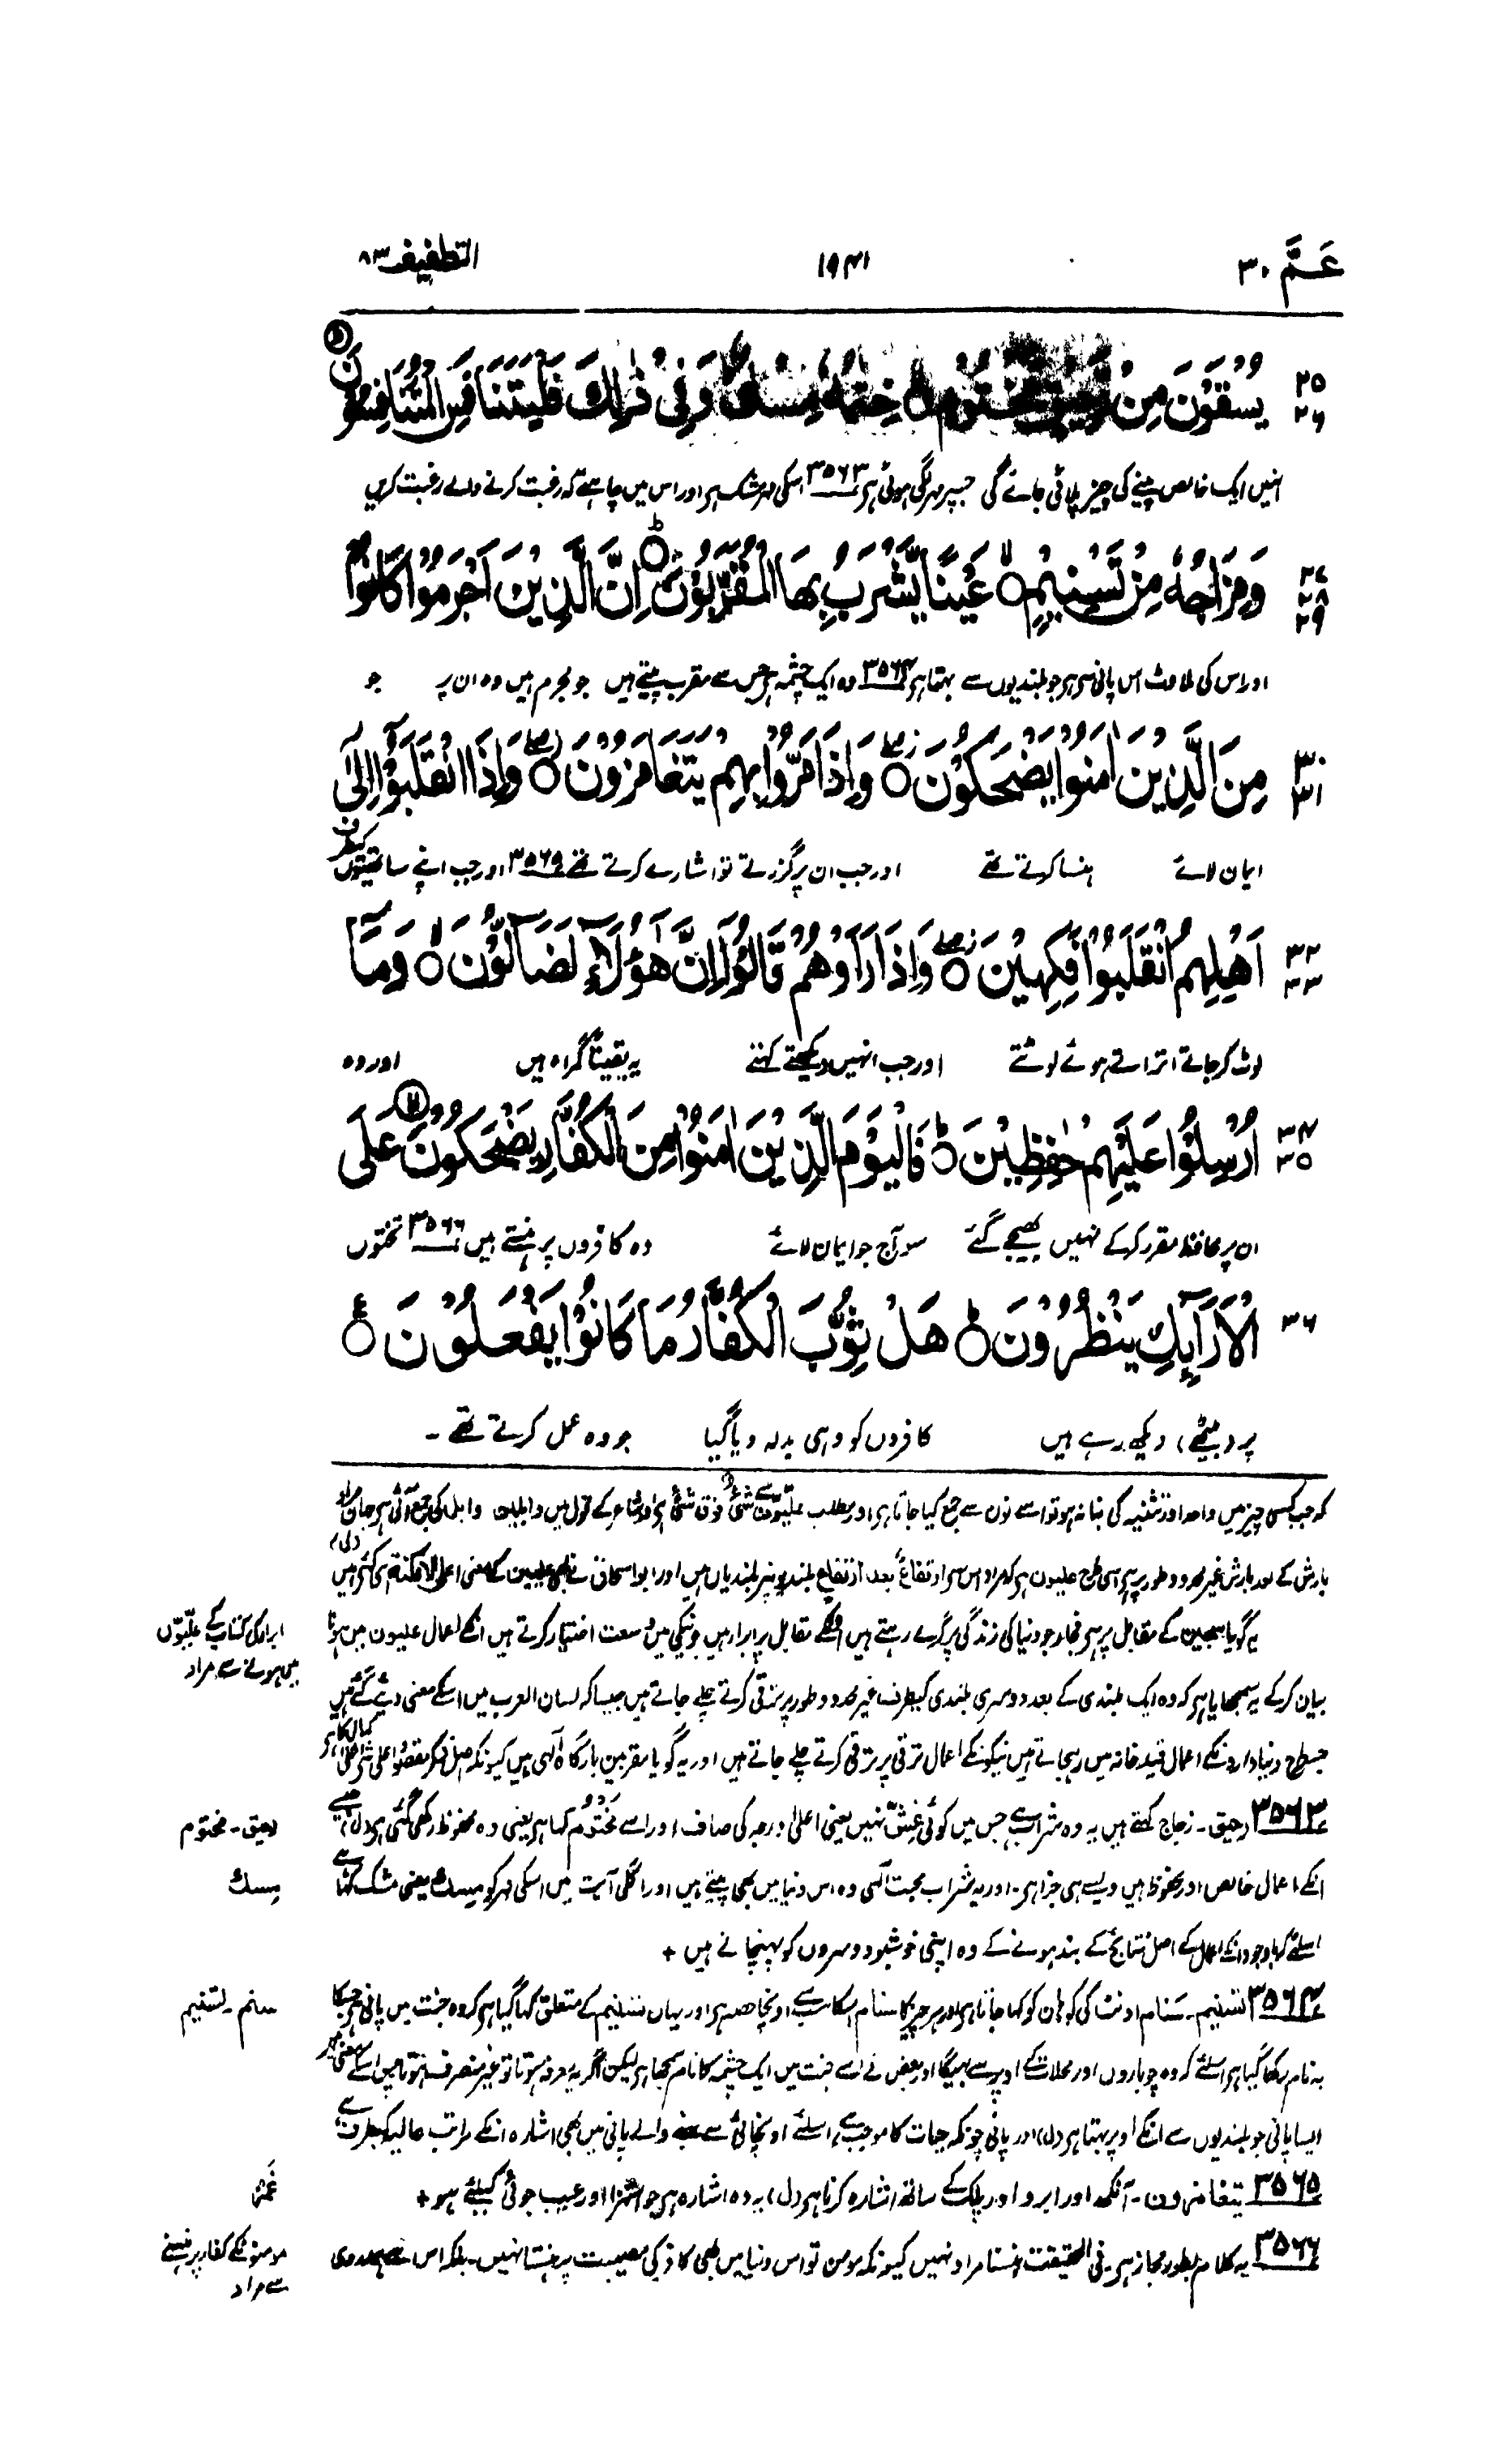 عَمَّ ۳۰
۱۹۴۱
التطفيف ۸۳
۲۵
۲۶
يُسْقَوْنَ مِنْ رَّحِيْقٍ مَّخْتُوْمٍ ۙ خِتٰمُهٗ مِسْكٌ ۚ وَفِيْ ذٰلِكَ فَلْيَتَنَافَسِ الْمُتَنَافِسُوْنَ
انہیں ایک خالص پینے کی چیز پلائی جائے گی جسپر مہر لگی ہوئی ہے ۳۵۶۳ اسکی مہر مشک ہے اور اس میں چاہئے کہ رغبت کرنے والے رغبت کریں
۲۷
۲۸
۲۹
وَمِزَاجُهٗ مِنْ تَسْنِيْمٍ ۙ عَيْنًا يَّشْرَبُ بِهَا الْمُقَرَّبُوْنَ ؕ اِنَّ الَّذِيْنَ اَجْرَمُوْا كَانُوْا
اور اس کی ملاوٹ اس پانی سے ہے جو بلندیوں سے بہتا ہے ۳۵۶۴ وہ ایک چشمہ ہے جس سے مقرب پیتے ہیں جو مجرم ہیں وہ ان پر جو
۳۰
۳۱
مِنَ الَّذِيْنَ اٰمَنُوْا يَضْحَكُوْنَ ۖ وَاِذَا مَرُّوْا بِهِمْ يَتَغَامَزُوْنَ ۖ وَاِذَا انْقَلَبُوْٓا اِلٰٓى
ایمان لائے ہنسا کرتے تھے اور جب ان پر گزرتے تو اشارے کرتے تھے ۳۵۶۵ اور جب اپنے ساتھیوں کیطرف
۳۲
۳۳
اَهْلِهِمُ انْقَلَبُوْا فَكِهِيْنَ ۖ وَاِذَا رَاَوْهُمْ قَالُوْٓا اِنَّ هٰٓؤُلَآءِ لَضَآلُّوْنَ ۙ وَمَآ
لوٹ کر جاتے اتراتے ہوئے لوٹتے اور جب انہیں دیکھتے کہتے یہ یقیناً گمراہ ہیں اور وہ
۳۴
۳۵
اُرْسِلُوْا عَلَيْهِمْ حٰفِظِيْنَ ؕ فَالْيَوْمَ الَّذِيْنَ اٰمَنُوْا مِنَ الْكُفَّارِ يَضْحَكُوْنَ عَلَى
ان پر محافظ مقرر کرکے نہیں بھیجے گئے سو آج جو ایمان لائے وہ کافروں پر ہنستے ہیں ۳۵۶۶ تختوں
۳۶
الْاَرَآئِكِ يَنْظُرُوْنَ ؕ هَلْ ثُوِّبَ الْكُفَّارُ مَا كَانُوْا يَفْعَلُوْنَ
پر (بیٹھے) دیکھ رہے ہیں کافروں کو وہی بدلہ دیا گیا جو وہ عمل کرتے تھے ۔
کہ جب کسی چیز میں واحد اور تثنیہ کی بنا نہ ہو تو اسے نون سے جمع کیا جاتا ہے اور مطلب علیون سے شیٔ فوق شیٔ ہے اور شاعر کے قول میں وابلین وابل کی جمع آئی ہے جہاں مراد
بارش کے بعد بارش غیر محدود طور پر ہے اسی طرح علیون ہے کہ مراد اس سے ارتفاع بعد ارتفاع بلندیوں پر بلندیاں ہیں اور ابو اسحاق نے بھی علیین کے معنی اعلی الامکنۃ ہی کئے ہیں (ل)
یہ گویا سجین کے مقابل پر ہے فجار جو دنیا کی زندگی پر گرے رہتے ہیں انکے مقابل پر ابرار ہیں جو نیکی میں وسعت اختیار کرتے ہیں انکے اعمال علیون میں ہونا
بیان کرکے یہ سمجھایا ہے کہ وہ ایک بلندی کے بعد دوسری بلندی کیطرف غیر محدود طور پر ترقی کرتے چلے جاتے ہیں جیسا کہ لسان العرب میں اسکے معنی دئے گئے ہیں
جسطرح دنیا داروں کے اعمال قید خانہ میں رہجاتے ہیں نیکوں کے اعمال ترقی پر ترقی کرتے چلے جاتے ہیں اور یہ گویا مقربین بارگاہ الٰہی ہیں کیونکہ اصل ذکر
ابرار کی کتاب کے علیّون میں ہونے سے مراد
۳۵۶۳ رحیق ۔ زجاج کہتے ہیں یہ وہ شراب ہے جس میں کوئی غِشّ نہیں یعنی اعلیٰ درجہ کی صاف اور اسے مختوم کہا ہے یعنی وہ محفوظ رکھی گئی ہے (ل) جیسے
انکے اعمال خالص اور محفوظ ہیں ویسے ہی جزا ہے ۔ اور یہ شراب محبت الٰہی وہ اس دنیا میں بھی پیتے ہیں اور اگلی آیت میں اسکی مہر کو مسك یعنی مشک کہا ہے
اسلئے کہ باوجود انکے اعمال کے اصل نتائج کے بند ہونے کے وہ اپنی خوشبو دوسروں کو پہنچاتے ہیں +
رحیق ۔ مختوم
مسك
۳۵۶۴ تسنیم ۔ سَنام اونٹ کی کوہان کو کہا جاتا ہے اور ہر چیز کا سنام اسکا سب سے اونچا حصہ ہے اور یہاں تسنیم کے متعلق کہا گیا ہے کہ وہ جنت میں پانی ہے جسکا
یہ نام رکھا گیا ہے اسلئے کہ وہ چوباروں اور محلات کے اوپر سے بہیگا اور بعض نے اسے جنت میں ایک چشمہ کا نام سمجھا ہے لیکن اگر یہ معرفہ ہوتا تو غیر منصرف ہوتا پس اسکے معنی ہیں
ایسا پانی جو بلندیوں سے انکے اوپر بہتا ہے (ل) اور پانی چونکہ حیات کا موجب ہے اسلئے اونچائی سے بہنے والے پانی میں بھی اشارہ انکے مراتب عالیہ کیطرف ہے
سنم ۔ تسنیم
۳۵۶۵ یتغامزون ۔ آنکھ اور ابرو اور پلک کے ساتھ اشارہ کرنا ہے (ل) یہ وہ اشارہ ہے جو استہزا اور عیب جوئی کیلئے ہو +
غَمز
۳۵۶۶ یہ کلام بطور مجاز ہے ۔ فی الحقیقت ہنسنا مراد نہیں کیونکہ مومن تو اس دنیا میں بھی کافر کی مصیبت پر ہنستا نہیں ۔ بلکہ اس سے ہمدردی
مومنوں کے کفار پر ہنسنے سے مراد